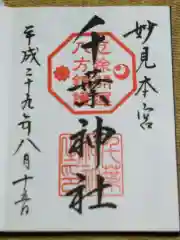 妙見本宮
千葉神社
平成二十九年八月十五日